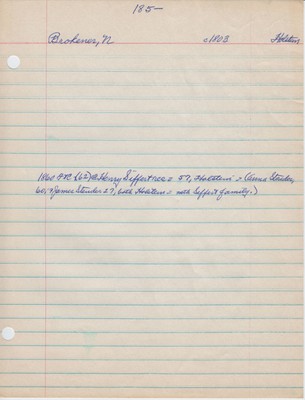 185—
Brokener, N c1803 Holstein
1860 (62) @ Henry Siffert res = 57, Holstein = (Anna Stender,
60, & James Stender 27, both Holstein = with Siffert family.)